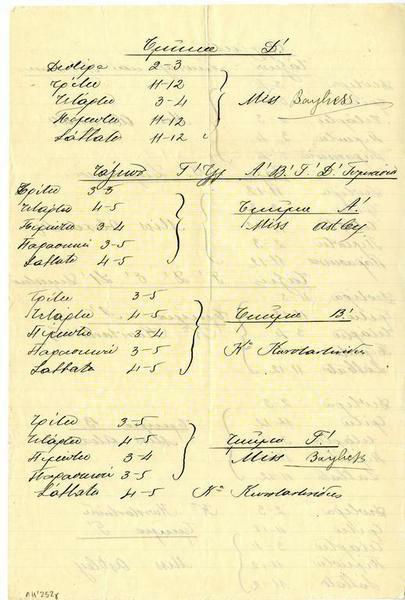 Τμῆμα Δ!
Δευτέρα 2-3
Τρίτη 11-12
Τετάρτη 3-4 Miss Bayliess.
Πέμπτη 11-12
Σάββατο 11-12
Γ! Α! Β! Γ! Δ! Γυμνασίου
Τρίτη 3-5
Τετάρτη 4-5 Τμῆμα Α!
Πέμπτη 3-4 Miss Astley
Παρασκευή 3-5
Σάββατο 4-5
Τρίτη 3-5
Τετάρτη 4-5 Τμῆμα Β!
Πέμπτη 3-4
Παρασκευή 3-5 Κα Κωνσταντινίδου
Σάββατο 4-5
Τρίτη 3-5
Τετάρτη 4-5 Τμῆμα Γ!
Πέμπτη 3-4 Miss Bayliess
Παρασκευή 3-5
Σάββατο 4-5 Κα Κωνσταντινίδου